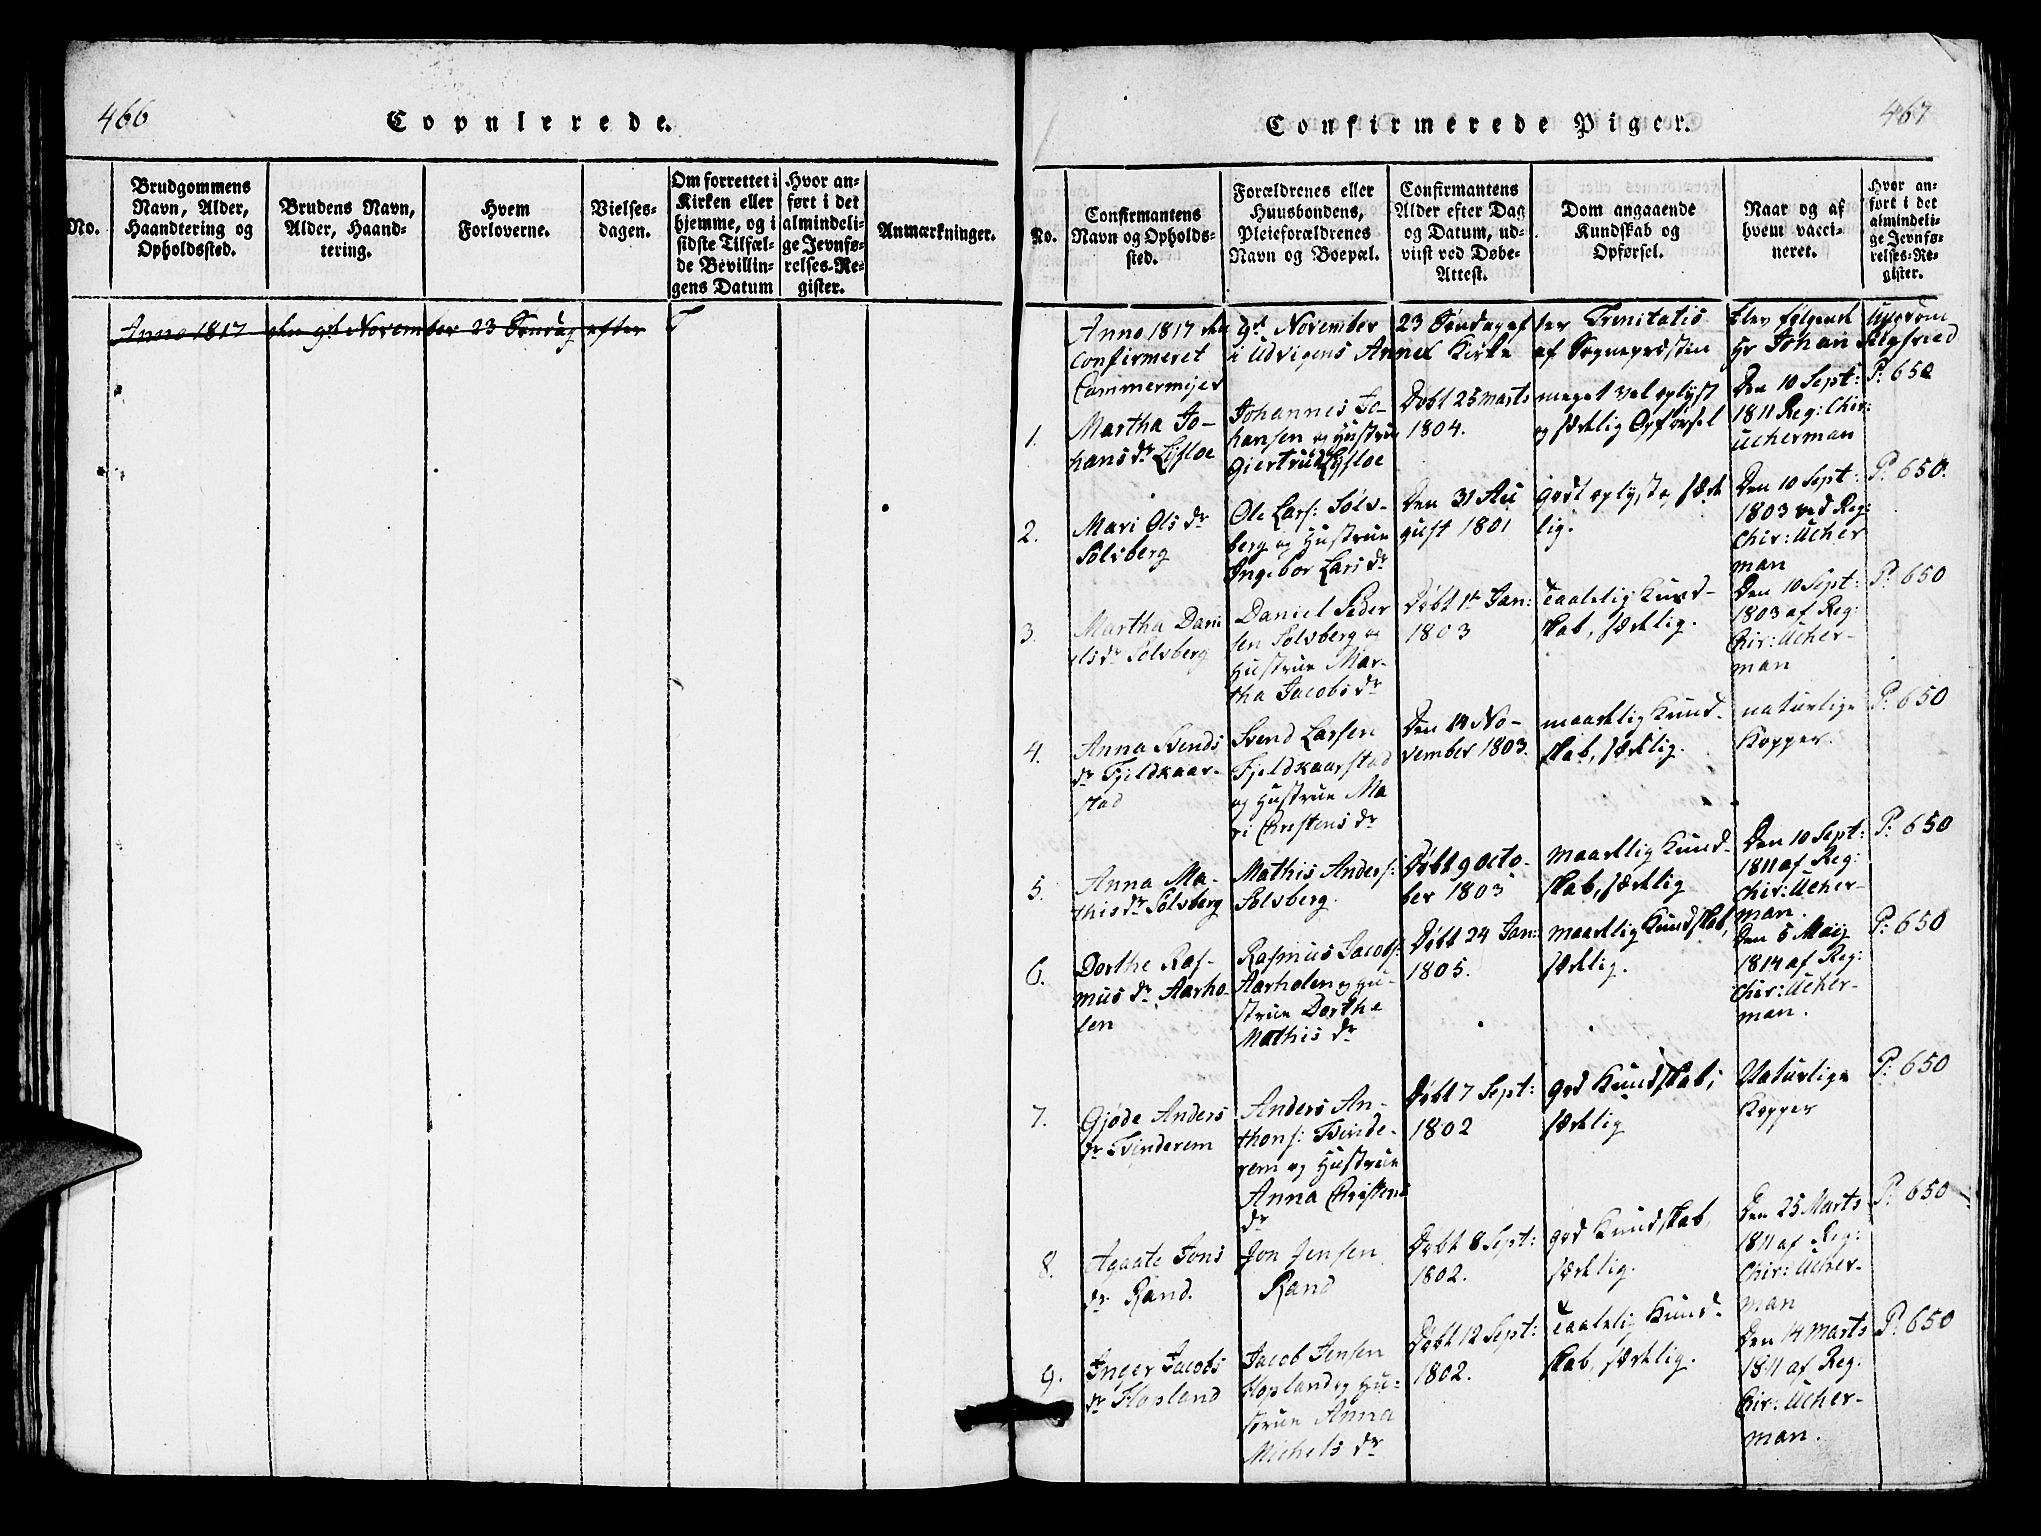 466
Copulerede.
No.
Brudgommens
Navn, Alder,
Haandtering og
Opholdssted.
Brudens Navn,
Alder, Haand-
tering.
Hvem
Forloverne.
Vielses-
dagen.
Om forrettet i
Kirken eller
hjemme, og i
sidste Tilfæl-
de Bevillin-
gens Datum
Hvor an-
ført i det
almindeli-
ge Jevnfø-
relses-Re-
gister.
Anmærkninger.
Anno 1817 den 9d November 23 Søndag efter T
467
Confirmerede Piger.
No.
Confirmantens
Navn og Opholds-
sted.
Forældrenes eller
Huusbondens,
Pleieforældrenes
Navn og Boepæl.
Confirmantens
Alder efter Dag
og Datum, ud-
viist ved Døbe-
Attest.
Dom angaaende
Kundskab og
Opførsel.
Naar og af
hvem vacci-
neret.
Hvor an-
ført i det
almindeli-
ge Jevnfø-
relses-Re-
gister.
Anno 1817 den 9d November 23 Søndag efter Trinitatis blev følgende Ungdom
confirmeret i Udvigens Annex Kirke af Sognepræsten Hr Johan Sigfried
Cammermeyer
1.
Martha Jo-
hansdr Lofloe
Johannes Jo-
hansen og Hustrue
Giertrud Lofloe
Døbt 25 Marts
1804.
meget vel oplyst
og sædelig Opførsel
Den 10 Sept:
1811 Reg: Chir:
Ucherman
P: 650
2.
Mari Ols dr
Solsberg
Ole Lars: Sols-
berg og Hustrue
Ingebor Lars dr
Den 31 Au
gust 1801
godt oplyst, sæde
lig.
Den 10 Sept:
1803 ved Reg:
Chir: Ucher
man
P: 650.
3.
Martha Dani
elsdr Solsberg
Daniel Peder
sen Solsberg og
Hustrue Mar-
tha Jacobs dr
Døbt 1t Jan:
1803
taalelig Kund-
skab, sædelig.
Den 10 Sept:
1803 af Reg:
Chir: Ucher-
man
P: 650
4.
Anna Svends
dr Fjeldkaar-
stad
Svend Larsen
Fjeldkaarstad
og Hustrue Ma
ri Christens dr
Den 14 No-
vember 1803.
maadelig Kund-
skab, sædelig.
naturlige
Kopper.
P: 650
5.
Anna Ma-
thisdr Solsberg
Mathis Anders:
Solsberg.
Døbt 9 Octo-
ber 1803
maadelig Kund-
skab, sædelig
Den 10 Sept:
1811 af Reg:
Chir: Ucher-
man.
P: 650
6.
Dorthe Ras-
mus dr Aarho-
len
Rasmus Jacobs:
Aarholen og Hu-
strue Dorthe
Mathis dr
Døbt 24 Jan:
1805.
maadelig Kundskab,
sædelig.
Den 5 Maij
1814 af Reg:
Chir: Ucher-
man.
P: 650
7.
Gjøde Anders
dr Tvinderem
Anders An-
thons: Tvinde-
rem og Hustrue
Anna Christens
dr
Døbt 7 Sept:
1802
god Kundskab,
sædelig
Naturlige
Kopper
P: 650
8.
Agaate Jons
dr Rand.
Jon Jensen
Rand
Døbt 8 Sept:
1802.
god Kundskab,
sædelig.
Den 25 Marts
1811 af Reg:
Chir: Ucher-
man
P: 650
9.
Inger Jacobs
dr Hopland
Jacob Jensen
Hopland og Hu-
strue Anna
Michels dr
Døbt 12 Sept:
1802.
taalelig Kund-
skab, sædelig.
Den 14 Marts
1811 af Reg.
Chir: Ucher-
man.
P: 650